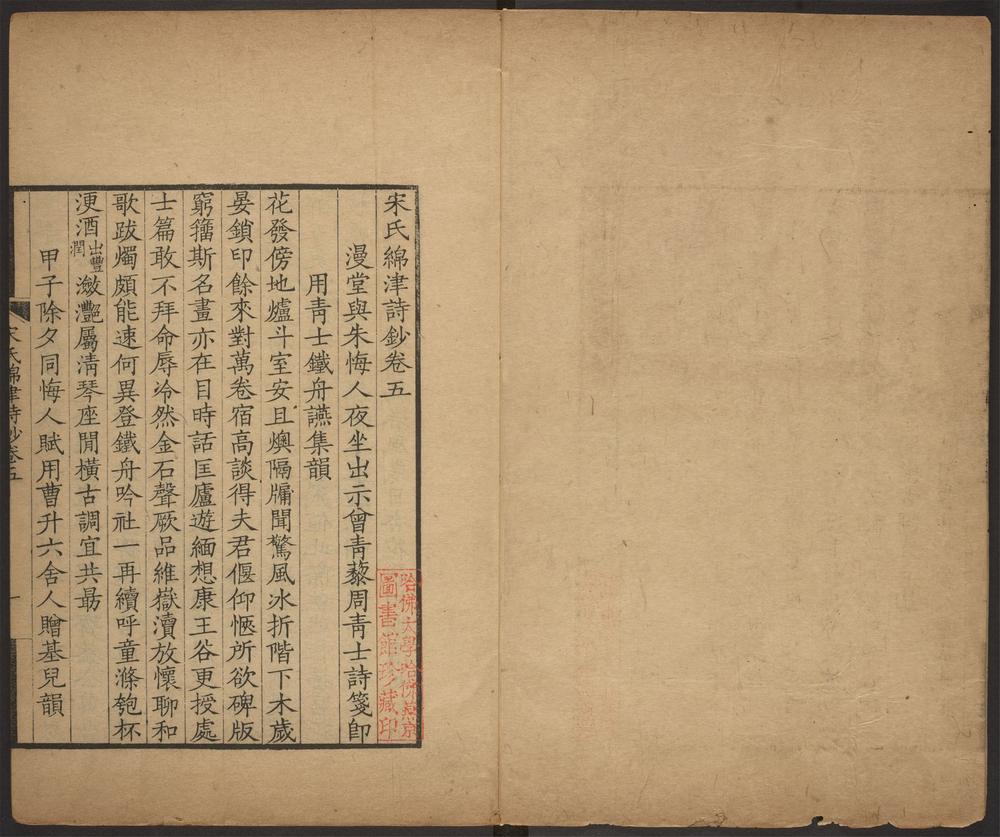 宋氏綿津詩鈔卷五
漫堂與朱悔人夜坐出示曾靑藜周靑士詩箋卽
用靑士鐵舟讌集韻
花發傍地爐斗室安且燠隔牖聞驚風冰折階下木歲
晏鎖印餘來對萬卷宿高談得夫君偃仰愜所欲碑版
窮籒斯名畫亦在目時話匡廬遊緬想康王谷更授處
士篇敢不拜命辱泠然金石聲厥品維嶽瀆放懷聊和
歌跋燭頗能速何異登鐵舟吟社一再續呼童滌匏杯
浭酒出豐潤瀲灧屬淸琴座閒橫古調宜共勗
甲子除夕同悔人賦用曹升六舍人贈基兒韻
宋氏綿津詩鈔卷五
一
哈佛大學哈佛燕京
圖書館珍藏印